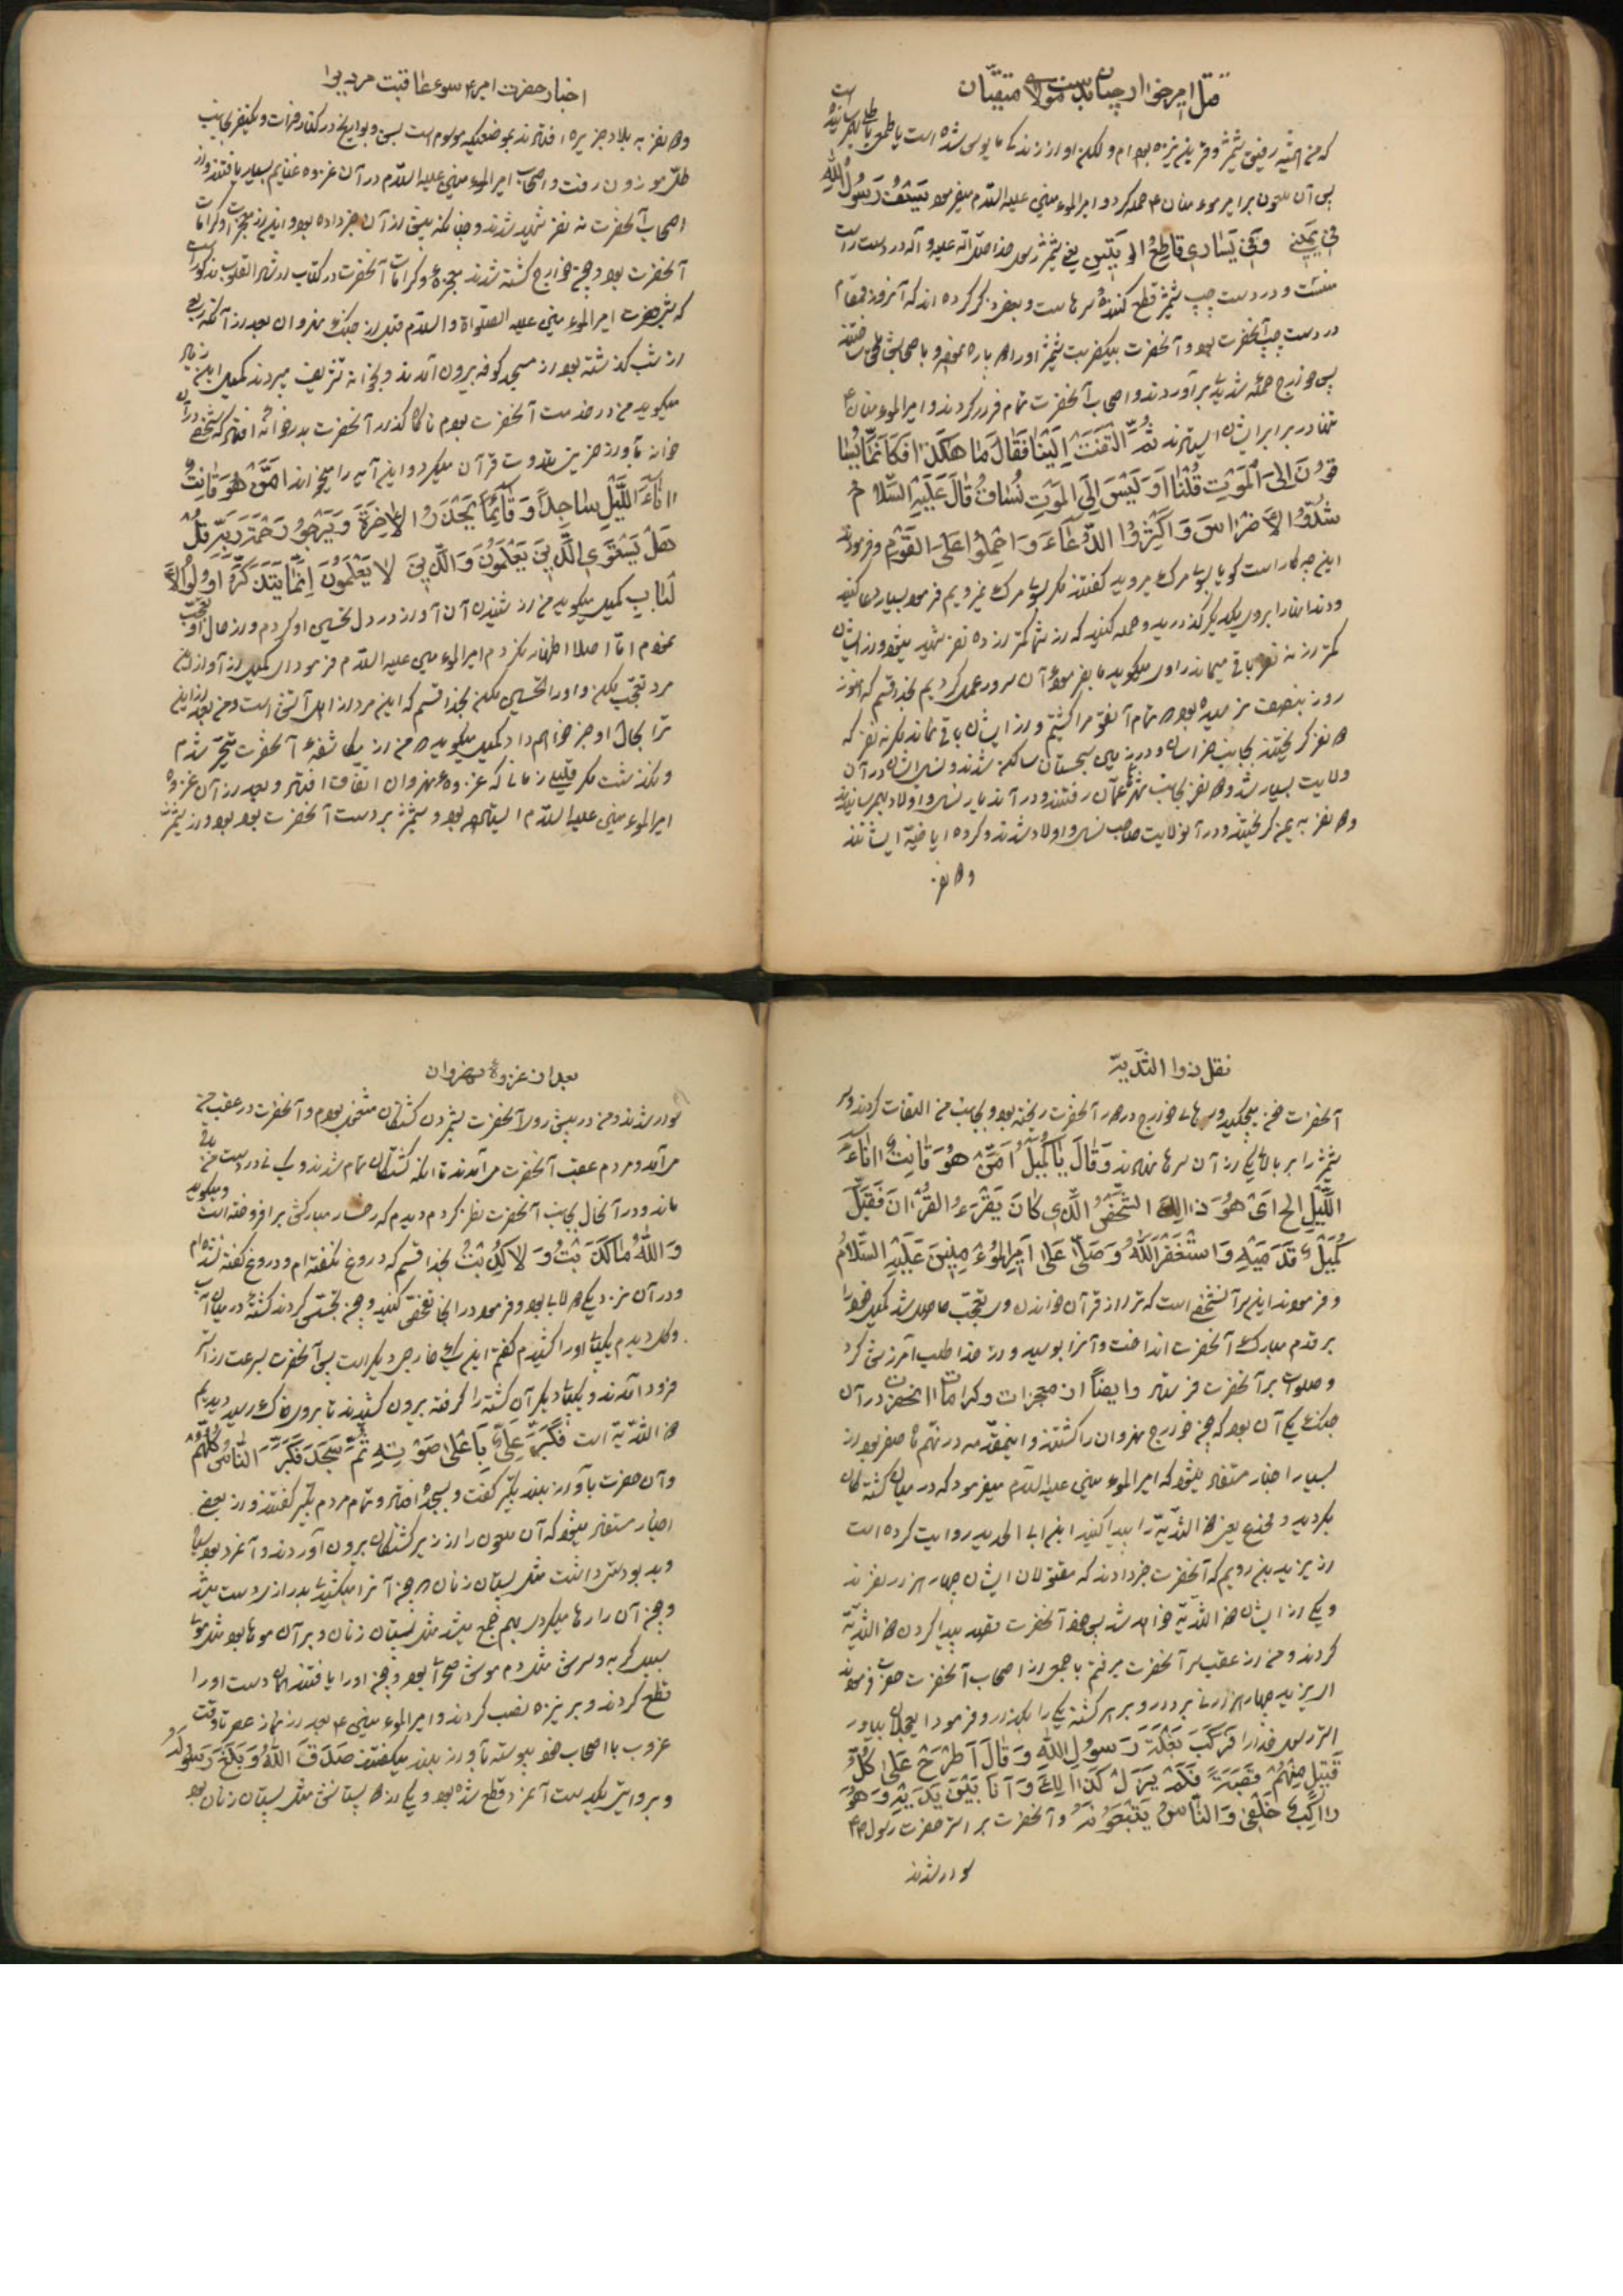 قتل امیر خوارج بدست مولای متقیان
که من همیشه رفیق شمشیر و قرین نیزه بوده ام ولکن او از زندگی مایوس شده است یا طمع باطلی بهم رسانیده است
پس آن ملعون بر امیر مومنان ع حمله کرد و امیر المومنین علیه السلام میفرمود سَیْفُ رَسُولِ اللّهِ
فی یَمینی وَ فی یَساری قاطِعُ الوَتینِ یعنی شمشیر رسول خدا صلی الله علیه و آله در دست راست
منست و در دست چپ شمشیر قطع کننده رگهاست و بعضی ذکر کرده اند که آنروز ذوالفقار
در دست چپ آنحضرت بود و آنحضرت بیکضربت شمشیر او را دو پاره نمود و باصحابش ملحق ساختند
پس خوارج حمله شدیدی برآوردند و اصحاب آنحضرت تمام فرار کردند و امیر المومنان ع
تنها در برابر ایشان ایستادند ثُمَّ التَفَتَ اِلَیْنا فَقالَ ما هکَذا فَکَاَنَّما یُسا
قُونَ اِلَی المَوْتِ قُلْنا اَوَ لَیْسَ اِلَی المَوْتِ نُساقُ قالَ عَلَیْهِ السَّلامُ
شُدُّوا الاَضْراسَ وَ اَکْثِرُوا الدُّعاءَ وَ احْمِلُوا عَلَی القَوْمِ و فرمودند
این چه کار است گویا بسوی مرگ میروید گفتند مگر بسوی مرگ نمیرویم فرمود بسیار دعا کنید
و دندانها را بر روی یکدیگر گذارید و حمله کنید که از شما کمتر از ده نفر شهید میشود و از ایشان
کمتر از ده نفر باقی میماند راوی میگوید ما بفرموده آن سرور عمل کردیم بخدا قسم که هنوز
روز بنصف نرسیده بود که تمام آنقوم را کشتیم و از ایشان باقی نماند مگر نه نفر که
دو نفر گریختند بجانب خراسان و در زمین سجستان ساکن شدند و نسل ایشان در آن
ولایت بسیار شد و دو نفر بجانب شهر عمان رفتند و در آن دیار نسل و اولاد بهم رسانیدند
و دو نفر به یمن گریختند و در آنولایت صاحب نسل و اولاد شدند و گروه اباضیه ایشانند
و دو نفر
اخبار حضرت امیر ع سوء عاقبت مردیرا
و دو نفر به بلاد جزیره افتادند بموضعیکه موسوم است بسن و بوازیج در کنار فرات و یکنفر بجانب
تل موزون رفت و اصحاب امیر المومنین علیه السلام در آن غزوه غنایم بسیار یافتند و از
اصحاب آنحضرت نه نفر شهید شدند و چنانکه پیش از آن خبر داده بود و این از معجزات و کرامات
آنحضرت بود و چون خوارج کشته شدند معجزه و کرامات آنحضرت در کتاب ارشاد القلوب مذکور است
که شبی حضرت امیر المومنین علیه الصلواة والسلام قبل از جنگ نهروان بعد از آنکه ربعی
از شب گذشته بود از مسجد کوفه بیرون آمدند و بخانه تشریف میبردند کمیل ابن زیاد
میگوید من در خدمت آنحضرت بودم ناگاه گذار آنحضرت بدر خانه افتاد که شخصی در آن
خانه بآواز حزین تلاوت قرآن میکرد و این آیه را میخواند اَمَّنْ هُوَ قانِتٌ
اناءَ اللَّیْلِ ساجِداً وَ قائِماً یَحْذَرُ الاخِرَةَ وَ یَرْجُو رَحْمَةَ رَبِّهِ قُلْ
هَلْ یَسْتَوِی الَّذینَ یَعْلَمُونَ وَ الَّذینَ لا یَعْلَمُونَ اِنَّما یَتَذَکَّرُ اُولُوا الاَ
لْبابِ کمیل میگوید من از شنیدن آن آواز در دل تحسین او کردم و از حال او تعجب
نمودم اما اصلا اظهار نکردم امیر المومنین علیه السلام فرمود ای کمیل از آواز این
مرد تعجب مکن و او را تحسین مکن بخدا قسم که این مرد از اهل آتش است و من بعد از این
ترا بحال او خبر خواهم داد کمیل میگوید که من از مکاشفه آنحضرت متحیر شدم
و نگذشت مگر قلیلی زمانی که غزوه نهروان اتفاق افتاد و بعد از آن غزوه
امیر المومنین علیه السلام ایستاده بود و شمشیر بر دست آنحضرت بود و از شمشیر
نقل ذوا الثدیه
آنحضرت خون میچکید و سرهای خوارج در دور آنحضرت ریخته بود و بجانب من التفات کردند و سر
شمشیر را بر بالای یکی از آن سرها نهادند وَ قالَ یا کُمَیْلُ اَمَّنْ هُوَ قانِتٌ اناءَ
اللَّیْلِ ای هُوَ ذلِکَ الشَّخْصُ الَّذی کانَ یَقْرَءُ القُرْانَ فَقَبَّلَ
کُمَیْلٌ قَدَمَیْهِ وَ اسْتَغْفَرَ اللّهَ وَ صَلّی عَلی اَمیرِ المُوْمِنینَ عَلَیْهِ السَّلامُ
و فرمودند این سر آنشخص است که ترا از قرآن خواندن وی تعجب حاصل شد کمیل خود را
بر قدم مبارک آنحضرت انداخت و آنرا بوسید و از خدا طلب آمرزش کرد
و صلوات بر آنحضرت فرستاد و ایضاً از معجزات و کرامات آنحضرت در آن
جنگ یکی آن بود که چون خوارج نهروان را کشتند و اینمقدمه در نهم ماه صفر بود از
بسیار اخبار مستفاد میشود که امیر المومنین علیه السلام میفرمود که در میان کشته گان
بگردید و مخدج یعنی ذو الثدیه را پیدا کنید ابن ابی الحدید روایت کرده است
از یزید بن رویم که آنحضرت خبر دادند که مقتولان ایشان چهار هزار نفرند
و یکی از ایشان ذو الثدیه خواهد شد پس چون آنحضرت قصد پیدا کردن ذو الثدیه
کردند و من از عقب سر آنحضرت میرفتم با جمعی از اصحاب آنحضرت حضرت فرمودند
ای یزید چهار هزار نی بردار و بر هر کشته یکی را بگذار و فرمود ایعجلان بیاور
استر رسول خدا را فَرَکِبَ بَغْلَةَ رَسُولِ اللّهِ وَ قالَ اَطْرَحْ عَلی کُلِّ
قَتیلٍ مِنْهُمْ قَصَبَةً فَلَمْ یَزَلْ کَذلِکَ وَ اَنَا بَیْنَ یَدَیْهِ وَ هُوَ
راکِبٌ خَلْفی وَ النّاسُ یَتْبَعُونَهُ و آنحضرت بر استر حضرت رسول ص
سوار شدند
بعد از غزوهٔ نهروان
سوار شدند و من در پیش روی آنحضرت بشمردن کشتگان مشغول بودم و آنحضرت در عقب من
می آمد و مردم عقب آنحضرت می آمدند تا آنکه کشتگان تمام شدند و یک نی در دست من باقی
ماند و در آنحال بجانب آنحضرت نظر کردم دیدم که رخسار مبارکش برافروخته است و میگوید
وَ اللّهِ ما کَذَبْتُ وَ لا کُذِبْتُ بخدا قسم که دروغ نگفته ام و دروغ گفته نشده ام
و در آن نزدیکی گودالابی بود و فرمود در اینجا تفحص کنید و چون تجسس کردند کشته در میان آب
و گل دیدم یکپای او را کشیدم گفتم این پای خارجی دیگر است پس آنحضرت بسرعت از استر
فرود آمدند و یکپای دیگر آن کشته را گرفته بیرون کشیدند تا بروی خاک رسید دیدیم
ذو الثدیه است فَکَبَّرَ عَلِیٌّ بِاَعْلی صَوْتِهِ ثُمَّ سَجَدَ فَکَبَّرَ النّاسُ کُلُّهُمْ
و آن حضرت بآواز بلند تکبیر گفت و بسجده افتاد و تمام مردم تکبیر گفتند و از بعضی
اخبار مستفاد میشود که آن ملعون را از زیر کشتگان بیرون آوردند و آنمرد بود سیاه
و بدبو دستی داشت مثل پستان زنان که چون آنرا میکشیدند بدرازی دست میشد
و چون آن را رها میکردی بهم جمع میشد مثل پستان زنان و بر آن موها بود مثل موی
سبیل گربه و سرش مثل دم موش صحرا بود و چون او را یافتند همان دست او را
قطع کردند و بر نیزه نصب کردند و امیر المومنین ع بعد از نماز عصر تا وقت
غروب با اصحاب خود پیوسته بآواز بلند میگفتند صَدَقَ اللّهُ وَ بَلَّغَ رَسُولُهُ
و بروایتی یکدست آنمرد قطع شده بود و یکی از دو پستانش مثل پستان زنان بود